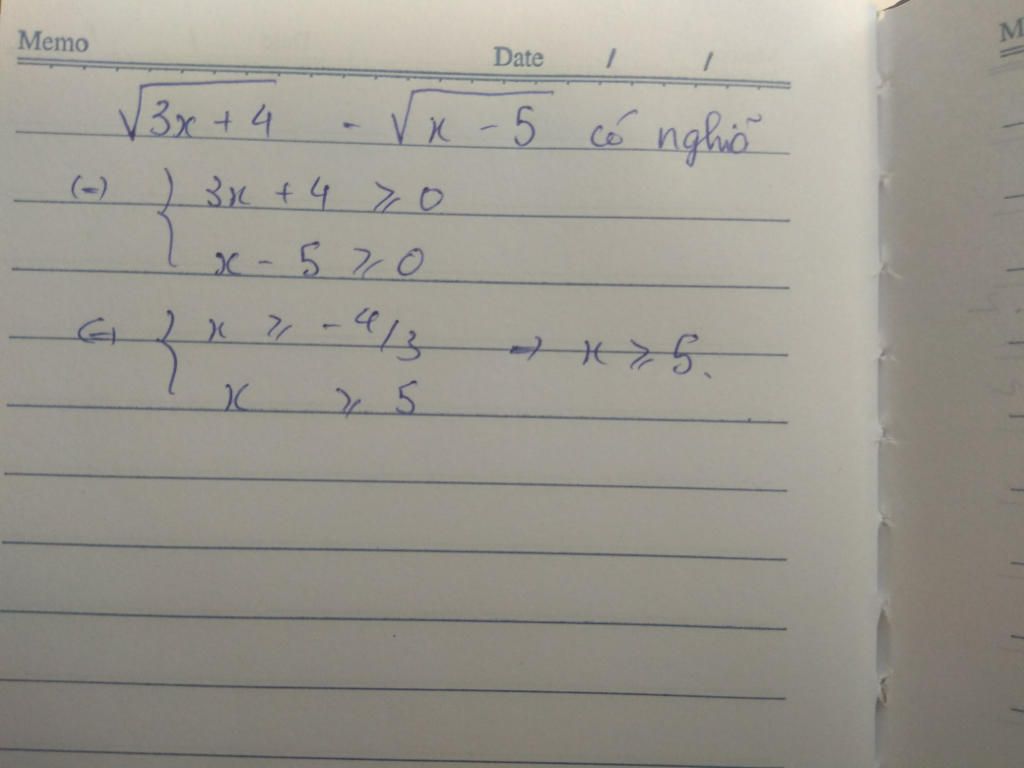 Memo
Date / /
√3x + 4 - √x - 5 có nghiõ
(=) { 3x + 4 ⩾ 0
x - 5 ⩾ 0
(=) { x ⩾ -4/3 → x ⩾ 5.
x ⩾ 5
M